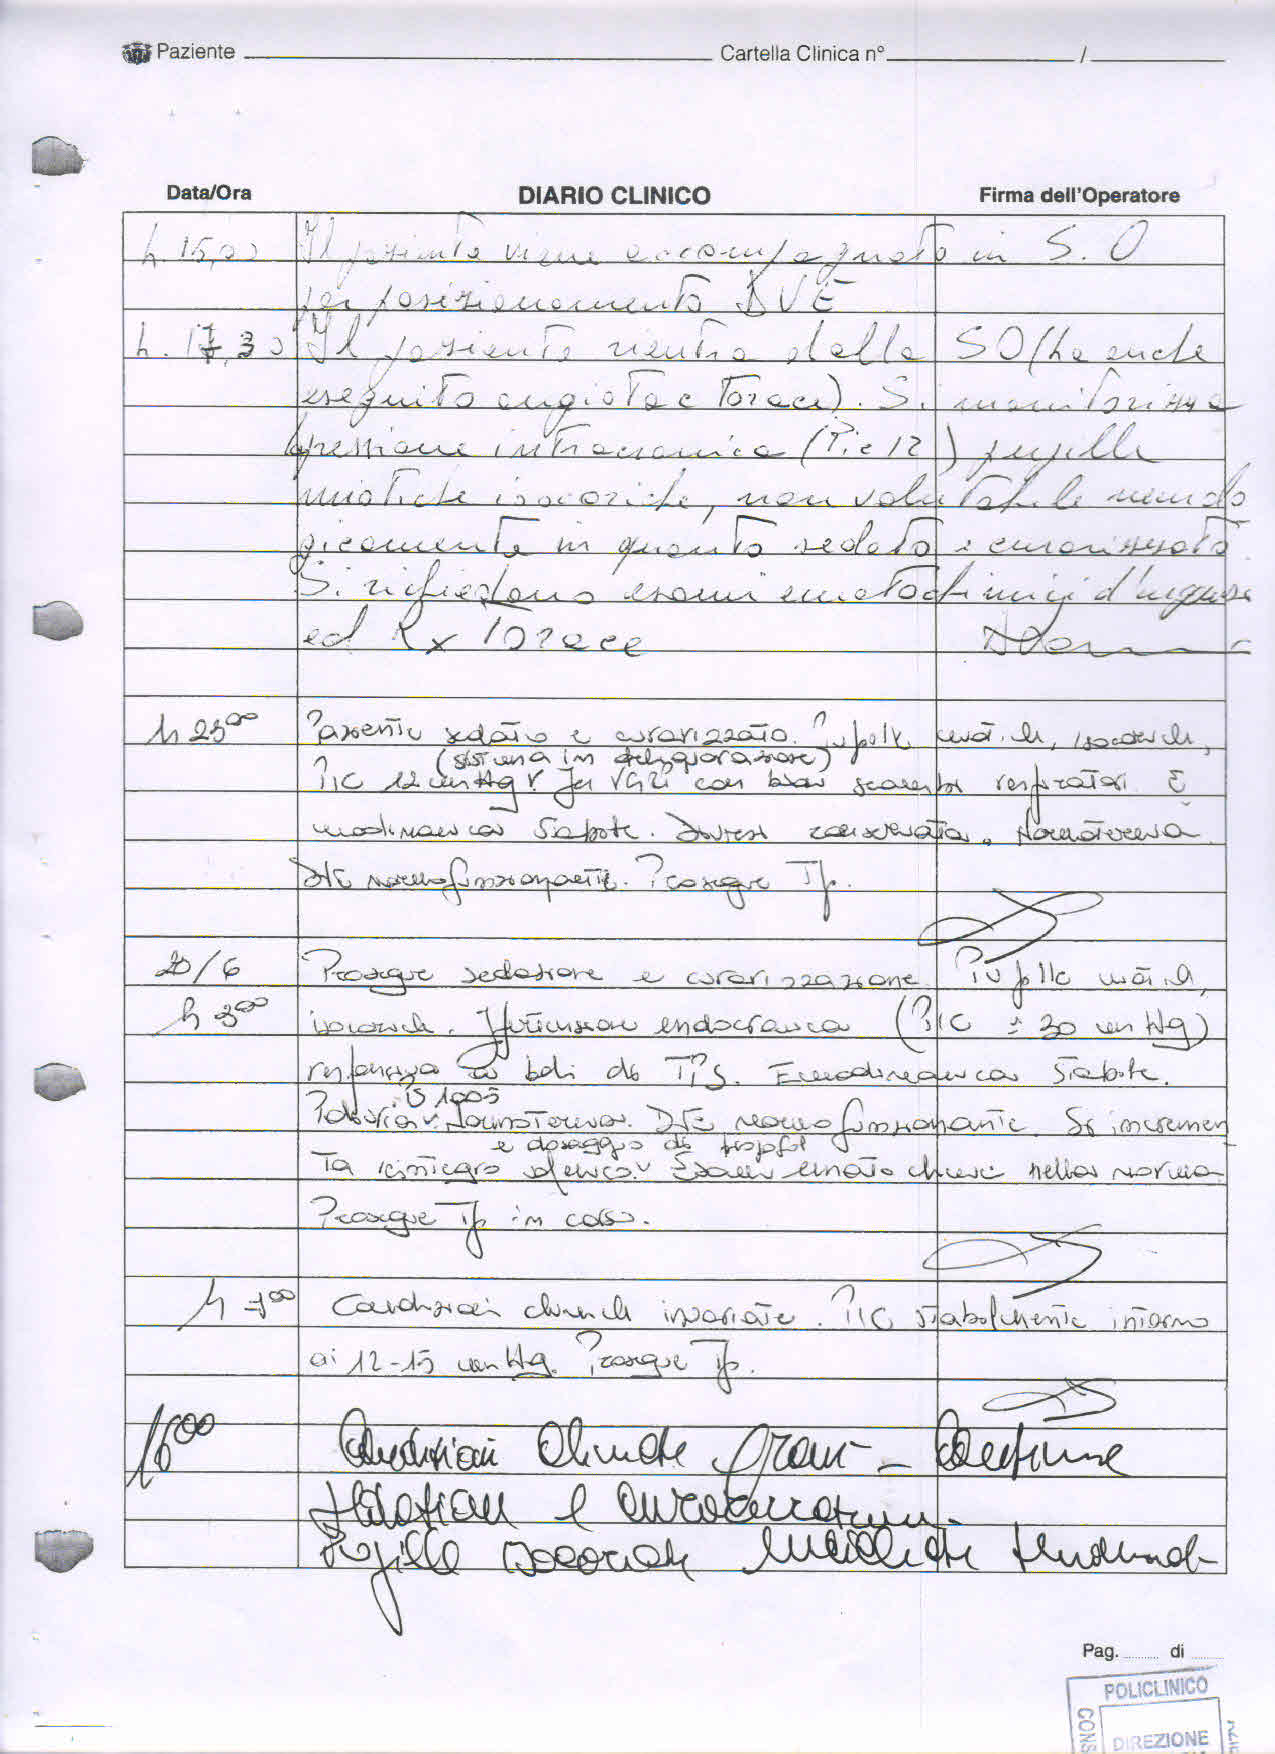 Paziente Cartella Clinica n° /
Data/Ora DIARIO CLINICO Firma dell'Operatore
h. 15,00 Il paziente viene accompagnato in S.O
per posizionamento DVE
h. 17,30 Il paziente rientra dalla SO (ha anche
eseguito angiotac torace). Si monitorizza
pressione intracranica (Pic 12) pupille
miotiche isocoriche, non valutabile neurolo
gicamente in quanto sedato e curarizzato
Si richiedono esami ematochimici d'ingresso
ed Rx Torace
h 23⁰⁰ Paziente sedato e curarizzato. Pupille miotiche, isocoriche,
(sistema in
PIC 12 mmHg. In con buoni scambi respiratori. E
modinamica stabile. Diuresi conservata. Normotermia.
DVE normofunzionante. Prosegue Tp.
20/6 Prosegue sedazione e curarizzazione. Pupille miotiche,
h 3⁰⁰ isocoriche. Ipertensione endocranica (PIC 30 mmHg)
responsiva a boli di TPS. Emodinamica stabile.
Poliuria. Normotermia. DVE normofunzionante. Si incremen
e dosaggio di propofol
ta reintegro idrico. Esami ematochimici nella norma.
Prosegue Tp in corso.
h 7⁰⁰ Condizioni cliniche invariate. PIC stabilmente intorno
ai 12-15 mmHg. Prosegue Tp.
16⁰⁰ Condizioni cliniche gravi - Continua
sedazione e curarizzazione.
Pupille isocoriche
Pag. di
POLICLINICO
CONS
DIREZIONE